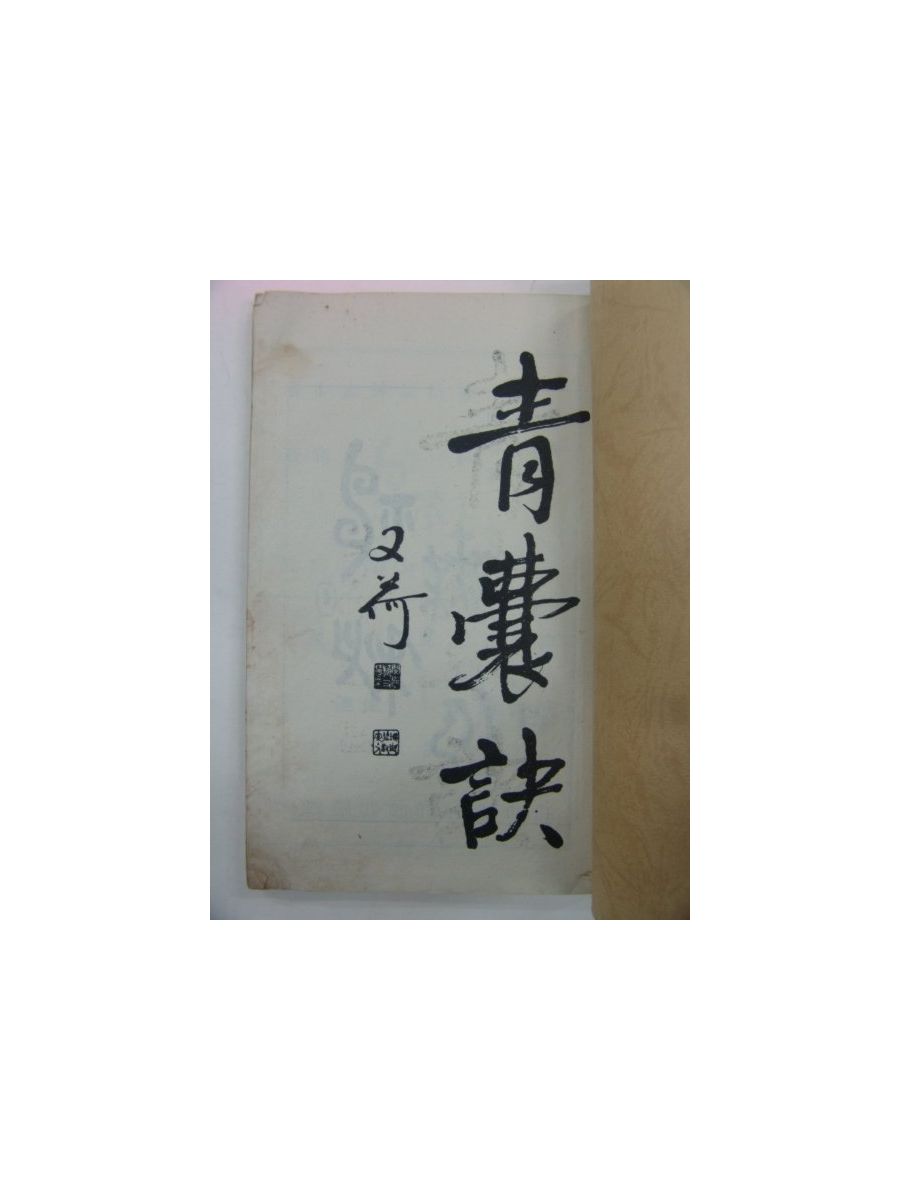 青囊訣
又荷